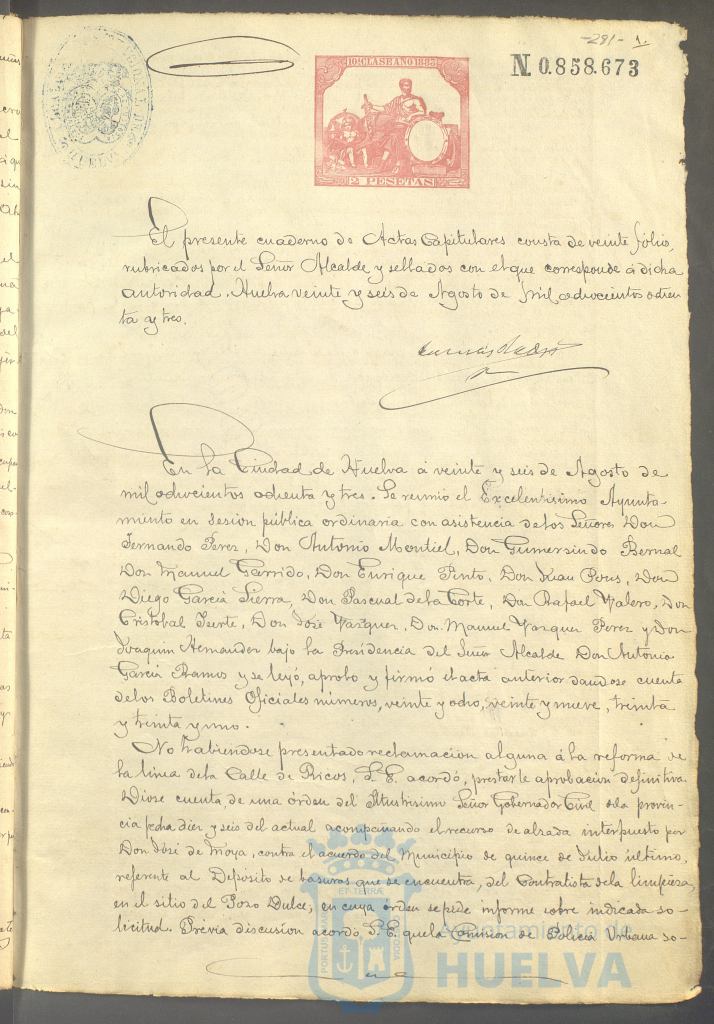 -291- 1.
10ª CLASE AÑO 1883
N. 0.858.673
2 PESETAS
El presente cuaderno de Actas Capitulares consta de veinte folio,
rubricados por el Señor Alcalde y sellados con el que corresponde á dicha
autoridad. Huelva veinte y seis de Agosto de mil ochocientos ochen
ta y tres.
En la Ciudad de Huelva á veinte y seis de Agosto de
mil ochocientos ochenta y tres. Se reunió el Excelentisimo Ayunta-
miento en sesion pública ordinaria con asistencia de los Señores Don
Fernando Perez, Don Antonio Montiel, Don Gumersindo Bernal
Don Manuel Garrido, Don Enrique Pinto, Don Juan Pons, Don
Diego Garcia Sierra, Don Pascual de la Corte, Don Rafael Valero, Don
Cristobal Don José Vazquez, Don Manuel Vazquez Perez y Don
Joaquin Hernandez bajo la Presidencia del Señor Alcalde Don Antonio
Garcia Ramos y se leyó, aprobo y firmó el acta anterior dandose cuenta
de los Boletines Oficiales números, veinte y ocho, veinte y nueve, treinta
y treinta y uno.
No habiendose presentado reclamacion alguna á la reforma de
la linea de la Calle de Ricos, S. E. acordó, prestarle aprobacion definitiva.
Diose cuenta de una órden del Iltustrisimo Señor Gobernador Civil de la provin-
cia fecha diez y seis del actual acompañando el recurso de alzada interpuesto por
Don José de Moya, contra el acuerdo del Municipio de quince de Julio ultimo,
referente al Deposito de basuras que se encuentra, del Contratista de la limpieza,
en el sitio del Pozo Dulce; en cuya órden se pide informe sobre indicada so-
licitud. Prévia discusion acordó S. E. que la Comision de Policia Urbana so-
PORTUS MARIS
ET TERRÆ
CUSTODIA
Ayuntamiento de
HUELVA